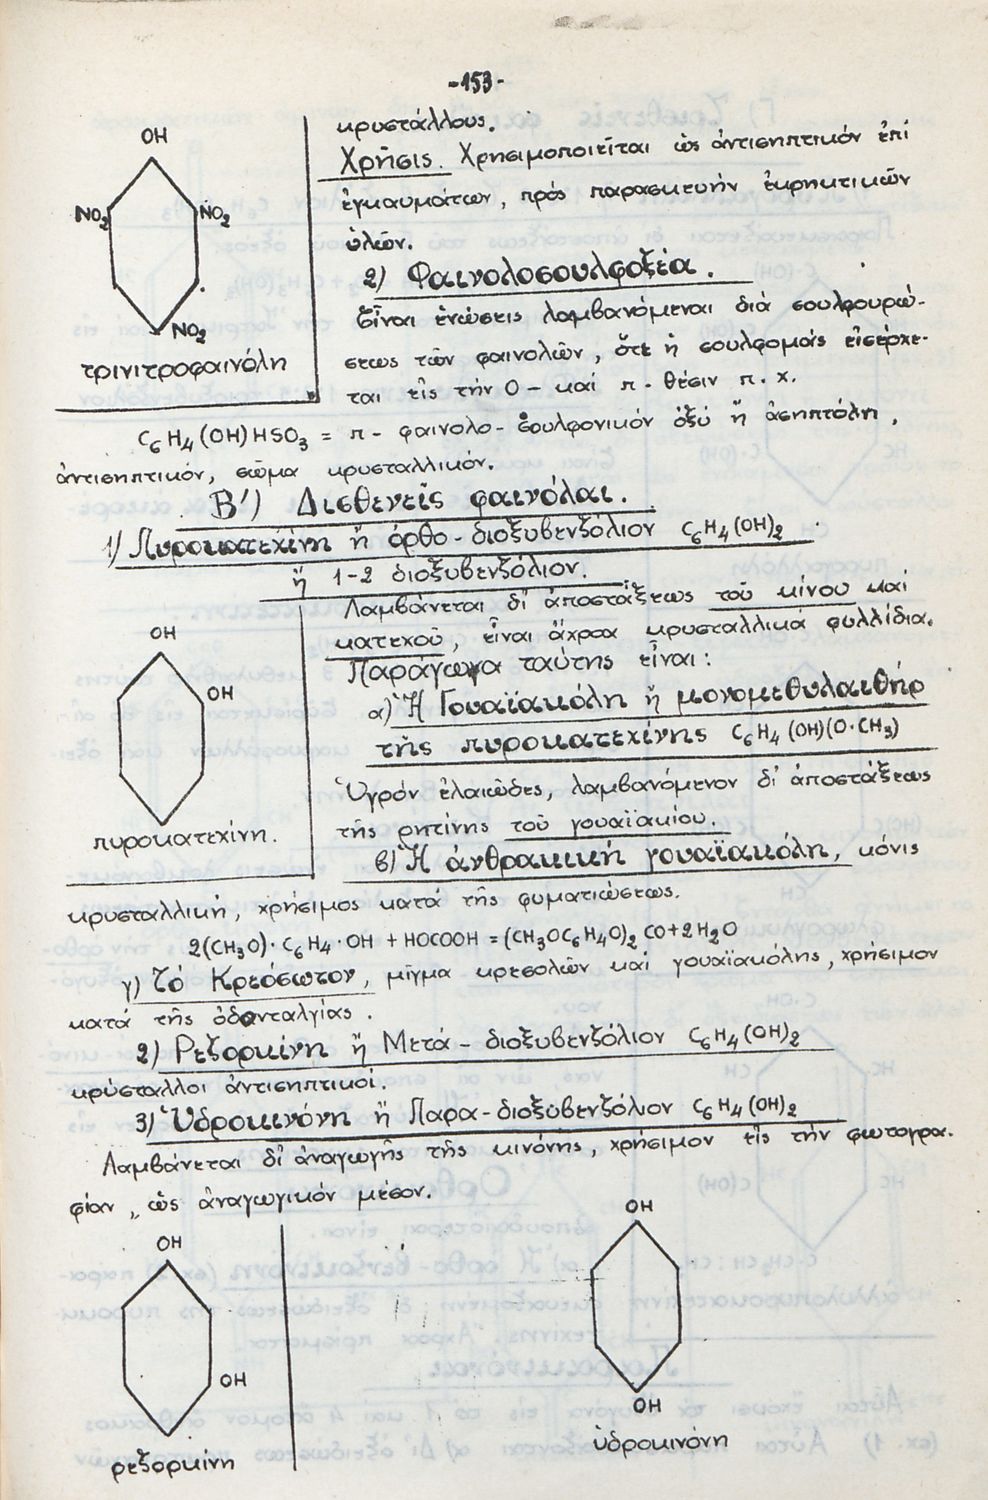 -153-
OH
NO2
NO2
NO2
τρινιτροφαινόλη
κρυστάλλους.
Χρῆσις. Χρησιμοποιεῖται ὡς ἀντισηπτικόν ἐπί
ἐγκαυμάτων, πρός παρασκευήν ἐκρηκτικῶν
ὑλῶν.
2) Φαινολοσουλφοξέα.
Εἶναι ἑνώσεις λαμβανόμεναι διά σουλφουρώ-
σεως τῶν φαινολῶν, ὅτε ἡ σουλφομάς εἰσέρχε-
ται εἰς τήν Ο- καί π-θέσιν π.χ.
C6H4(OH)HSO3 = π- φαινολο-σουλφονικόν ὀξύ ἤ ἀσηπτόλη,
ἀντισηπτικόν, σῶμα κρυσταλλικόν.
Β') Δισθενεῖς φαινόλαι.
1) Πυροκατεχίνη ἤ ὀρθο-διοξυβενζόλιον C6H4(OH)2
ἤ 1-2 διοξυβενζόλιον.
OH
OH
πυροκατεχίνη.
Λαμβάνεται δι' ἀποστάξεως τοῦ κίνου καί
κατεχοῦ, εἶναι ἄχροα κρυσταλλικά φυλλίδια.
Παράγωγα ταύτης εἶναι:
α) Ἡ Γουαϊακόλη ἤ μονομεθυλαιθήρ
τῆς πυροκατεχίνης C6H4(OH)(O·CH3)
Ὑγρόν ἐλαιῶδες, λαμβανόμενον δι' ἀποστάξεως
τῆς ρητίνης τοῦ γουαϊακίου.
β) Ἡ ἀνθρακική γουαϊακόλη, κόνις
κρυσταλλική, χρήσιμος κατά τῆς φυματιώσεως.
2(CH3O)·C6H4·OH + HOCOOH = (CH3OC6H4O)2 CO+2H2O
γ) Τό Κρεόσωτον, μῖγμα κρεσολῶν καί γουαϊακόλης, χρήσιμον
κατά τῆς ὀδονταλγίας.
2) Ρεζορκίνη ἤ Μετά-διοξυβενζόλιον C6H4(OH)2
κρύσταλλοι ἀντισηπτικοί.
3) Ὑδροκινόνη ἤ Παρα-διοξυβενζόλιον C6H4(OH)2
Λαμβάνεται δι' ἀναγωγῆς τῆς κινόνης, χρήσιμον εἰς τήν φωτογρα-
φίαν, ὡς ἀναγωγικόν μέσον.
OH
OH
ρεζορκίνη
OH
OH
ὑδροκινόνη